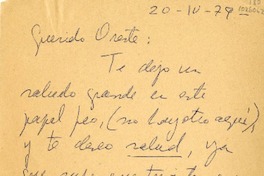 20-IV-79
Querido Oreste:
Te dejo un
saludo grande en este
papel feo, (no hay otro aquí),
y te deseo salud, ya
que